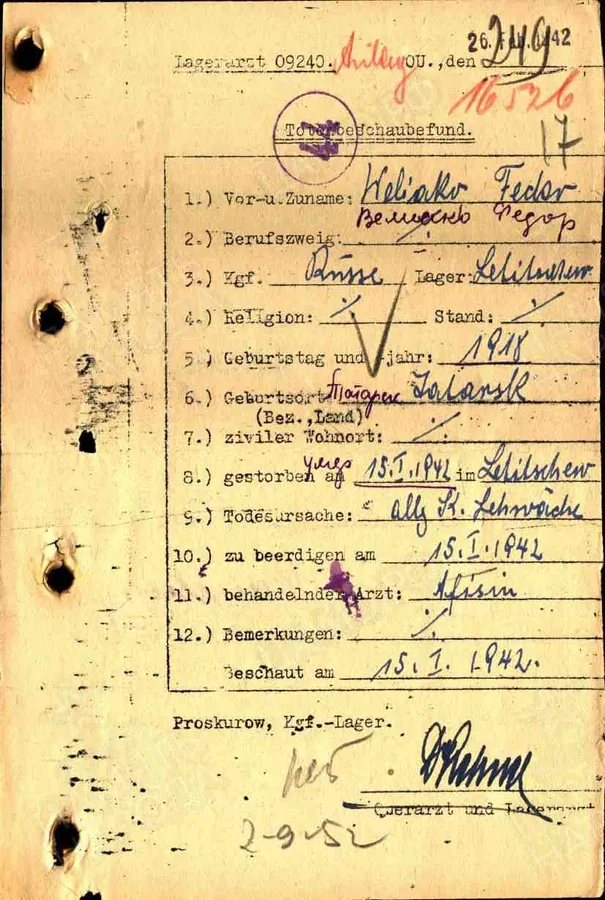 26. Feb. 1942
249
Lagerarzt 09240. OU.,den
16526
44
Totenbeschaubefund.
17
1.) Vor-u.Zuname: Weliako Fedor
Велиако Федор
2.) Berufszweig: ∕.
3.) Kgf. Russe Lager: Letitschew
4.) Religion: ∕. Stand: ∕.
5.) Geburtstag und -jahr: 1918
6.) Geburtsort Татарск Tatarsk
(Bez.,Land)
7.) ziviler Wohnort: ∕.
умер
8.) gestorben am 15.I.1942 im Letitschew
9.) Todesursache: allg K. Schwäche
10.) zu beerdigen am 15.I.1942
11.) behandelnder Arzt: Afisin
12.) Bemerkungen: ∕.
Beschaut am 15.I. 1942.
Proskurow, Kgf.-Lager.
Querarzt und Lagerarzt
2-9-52